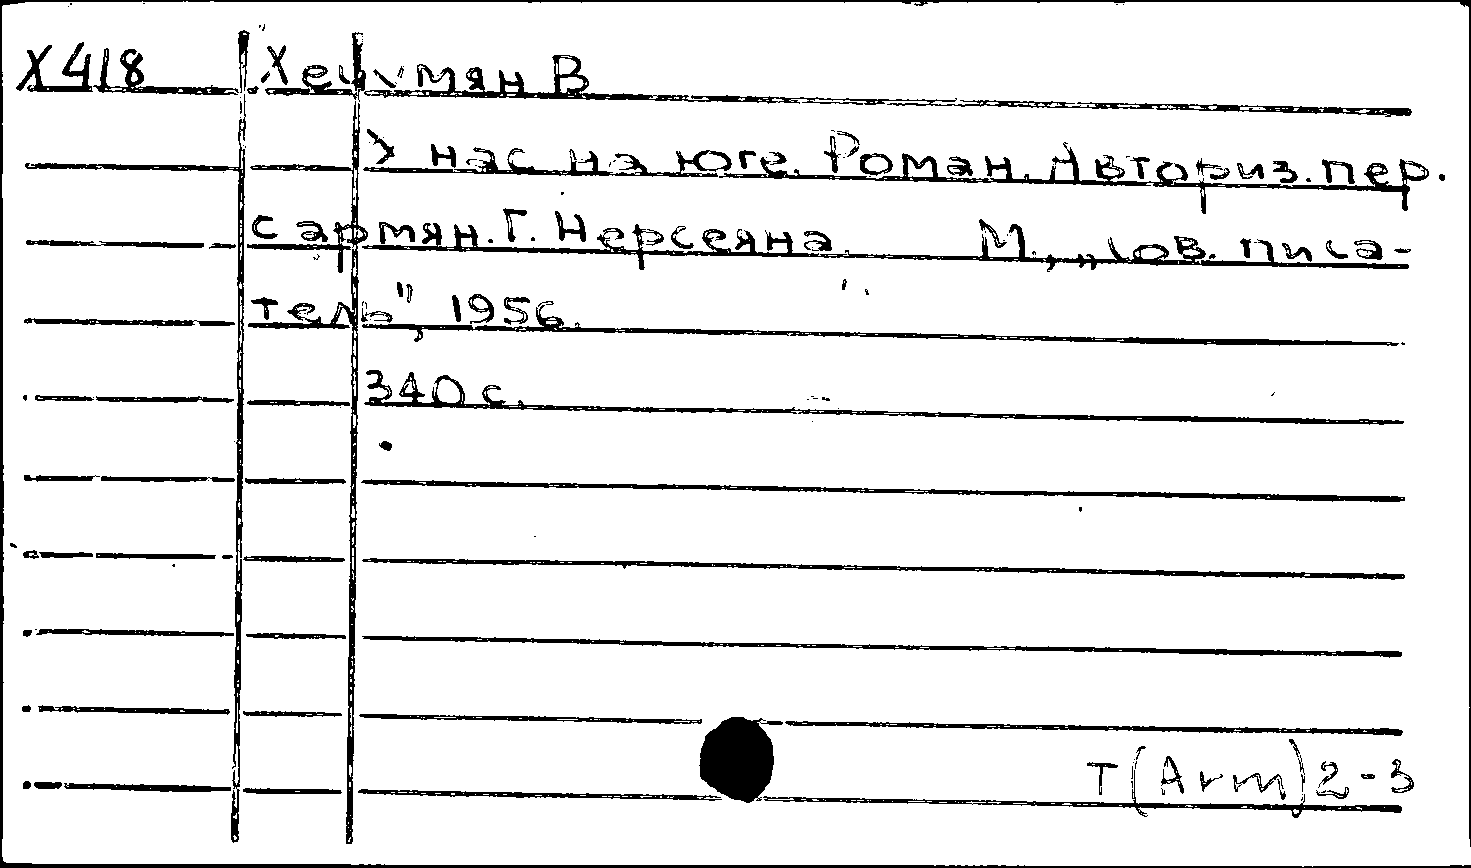 Х418 Хечумян В
У нас на юге. Роман. Авториз. пер.
с армян. Г. Нерсеяна. М., „Сов. писа-
тель", 1956.
340 с.
Т(Arm)2-3